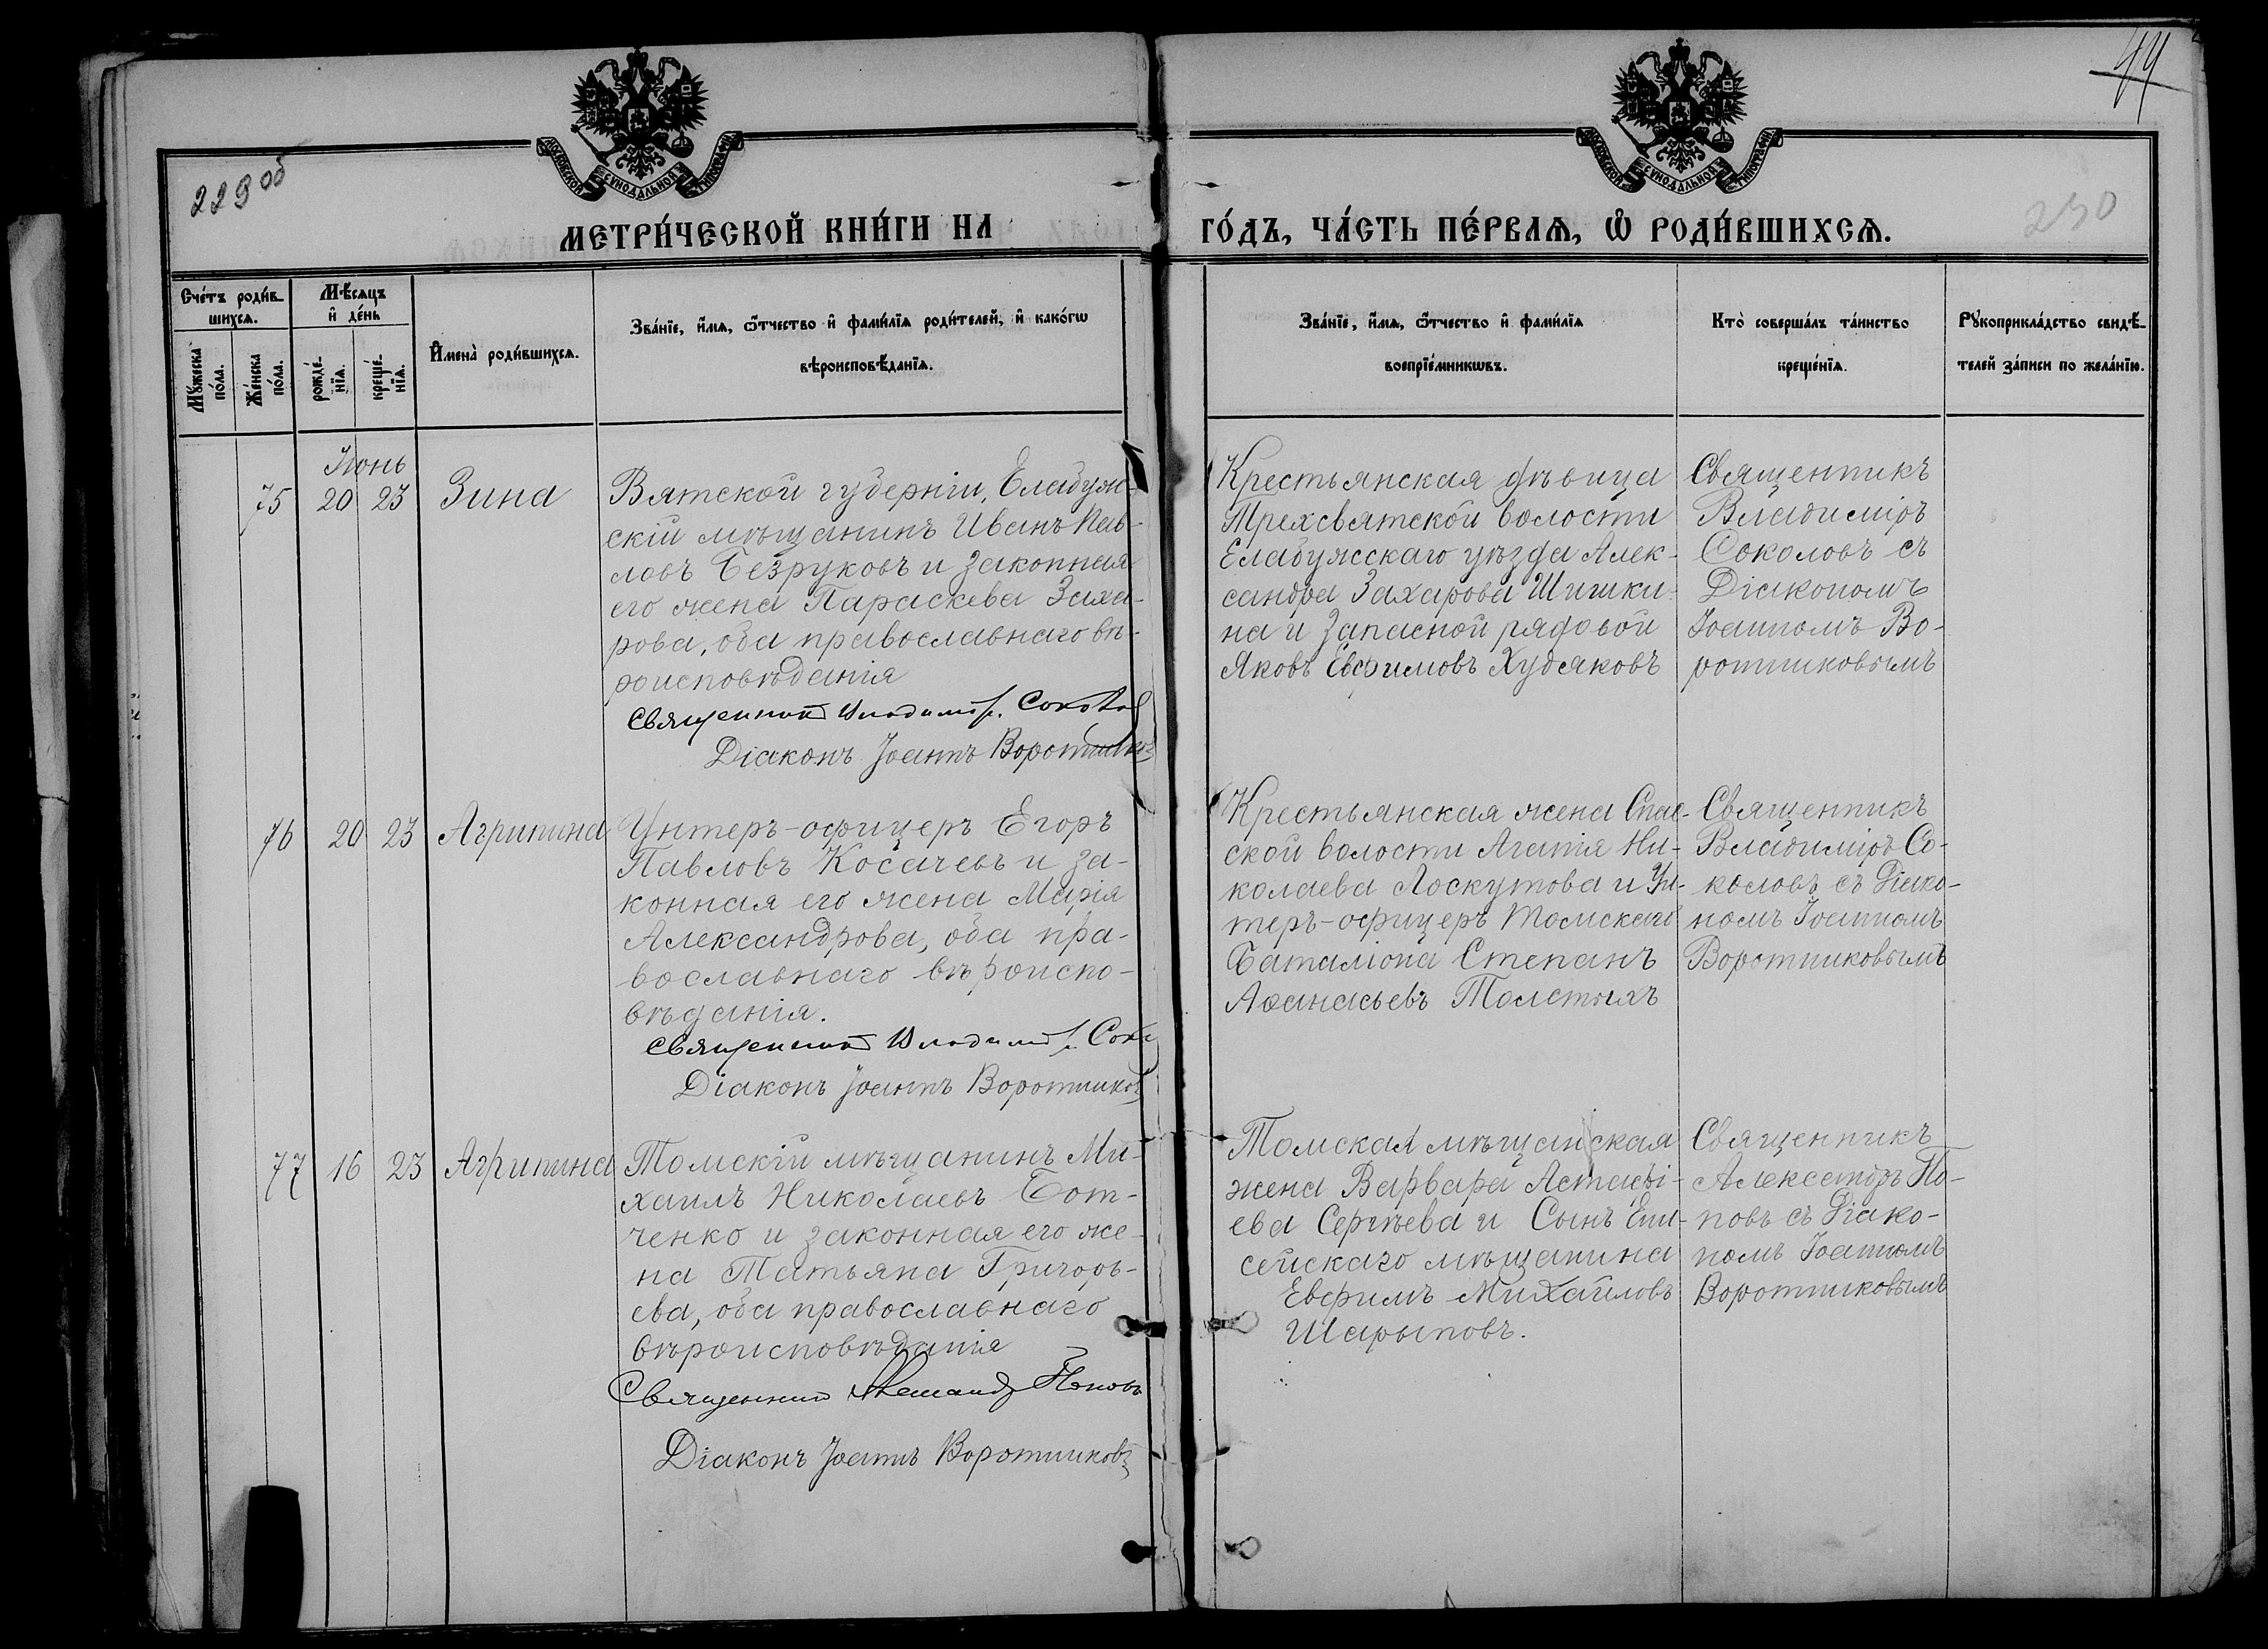 44
229 об
230
МОСКОВСКОЙ СѴНОДАЛЬНОЙ ТИПОГРАФІИ
МОСКОВСКОЙ СѴНОДАЛЬНОЙ ТИПОГРАФІИ
МЕТРИ́ЧЕСКОЙ КНИ́ГИ НА
ГО́ДЪ, ЧА́СТЬ ПЕ́РВАѦ, Ѡ҆ РОДИ́ВШИХСѦ.
Сче́тъ роди́в-
шихсѧ.
Мꙋ́жеска
по́ла.
Же́нска
по́ла.
Мѣ́сѧцъ
и҆ де́нь
рожде́-
нїѧ.
креще́-
нїѧ.
И҆мена̀ роди́вшихсѧ.
Зва́нїе, и҆́мѧ, ѻ҆́тчество и҆ фами́лїѧ роди́телей, и҆ како́гѡ
вѣроисповѣ́данїѧ.
Зва́нїе, и҆́мѧ, ѻ҆́тчество и҆ фами́лїѧ
воспрїе́мникѡвъ.
Кто̀ соверша́лъ та́инство
креще́нїѧ.
Рꙋкоприкла́дство свидѣ́-
телей за́писи по жела́нїю.
Іюнь
75 20 23 Зина
Вятской губерніи, Елабуж-
скій мѣщанинъ Иванъ Пав-
ловъ Безруковъ и законная
его жена Параскева Заха-
рова, оба православнаго вѣ-
роисповѣданія
Священникъ Владиміръ Соколов
Діаконъ Іоаннъ Воротников
Крестьянская дѣвица
Трехсвятской волости
Елабужскаго уѣзда Алек-
сандра Захарова Шишки-
на и запасной рядовой
Яковъ Евфимовъ Худяковъ
Священникъ
Владиміръ
Соколовъ съ
Діакономъ
Іоанномъ Во-
ротниковымъ
76 20 23 Агрипина
Унтеръ-офицеръ Егоръ
Павловъ Косачевъ и за-
конная его жена Марія
Александрова, оба пра-
вославнаго вѣроиспо-
вѣданія.
Священникъ Владиміръ Сок
Діаконъ Іоаннъ Воротников
Крестьянская жена Спас-
ской волости Агапія Ни-
колаева Лоскутова и Ун-
теръ-офицеръ Томскаго
Баталіона Степанъ
Аѳанасьевъ Толстыхъ
Священникъ
Владиміръ Со-
коловъ съ Діако-
номъ Іоанномъ
Воротниковымъ
77 16 23 Агрипина
Томскій мѣщанинъ Ми-
хаилъ Николаевъ Бот-
ченко и законная его же-
на Татьяна Григорь-
ева, оба православнаго
вѣроисповѣданія
Священникъ Александръ Поповъ
Діаконъ Іоаннъ Воротниковъ
Томская мѣщанская
жена Варвара Астафі-
ева Сергѣева и Сынъ Ени-
сейскаго мѣщанина
Евфимъ Михайловъ
Шарыповъ.
Священникъ
Александръ По-
повъ съ Діако-
номъ Іоанномъ
Воротниковымъ